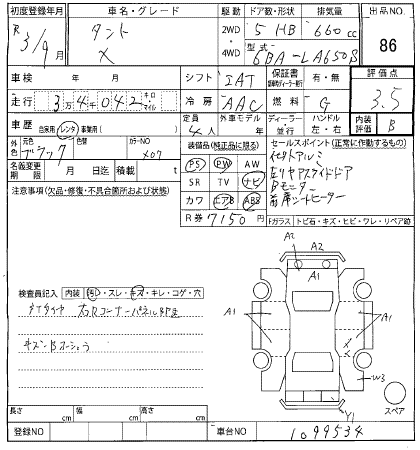 初度登録年月 車名・グレード 駆動 ドア数・形状 排気量 出品NO.
R 3/9月 タント X 2WD・4WD 5 HB 660cc 86
型式 6BA-LA650S
車検 年 月 シフト IAT 保証書 有・無 評価点 3.5
走行 3万4千042 キロ マイル 冷房 AAC 燃料 G 内装評価 B
車歴 自家用 レンタ 事業用( ) 定員 4人 外車モデル 年 ディーラー 並行 ハンドル 左・右
外色 元色 ブラック 色替 カラーNO X07
名義変更期限 月 日迄 積載 t
装備品(純正品に限る) セールスポイント(正常に作動するもの)
PS PW AW 社外アルミ
SR TV ナビ 左リヤPスライドドア
カワ エアB ABS Bモニター
R券 7150円 前席シートヒーター
注意事項(欠品・修復・不具合箇所および状態)
Fガラス トビ石・キズ・ヒビ・ワレ・リペア跡
A2
A2
A1
A1 A1
X
W3
Y1
スペア
検査員記入 内装 汚・スレ・キズ・キレ・コゲ・穴
右Rコーナーパネル
長さ cm 幅 cm 高さ cm
登録NO 車台NO 1099534